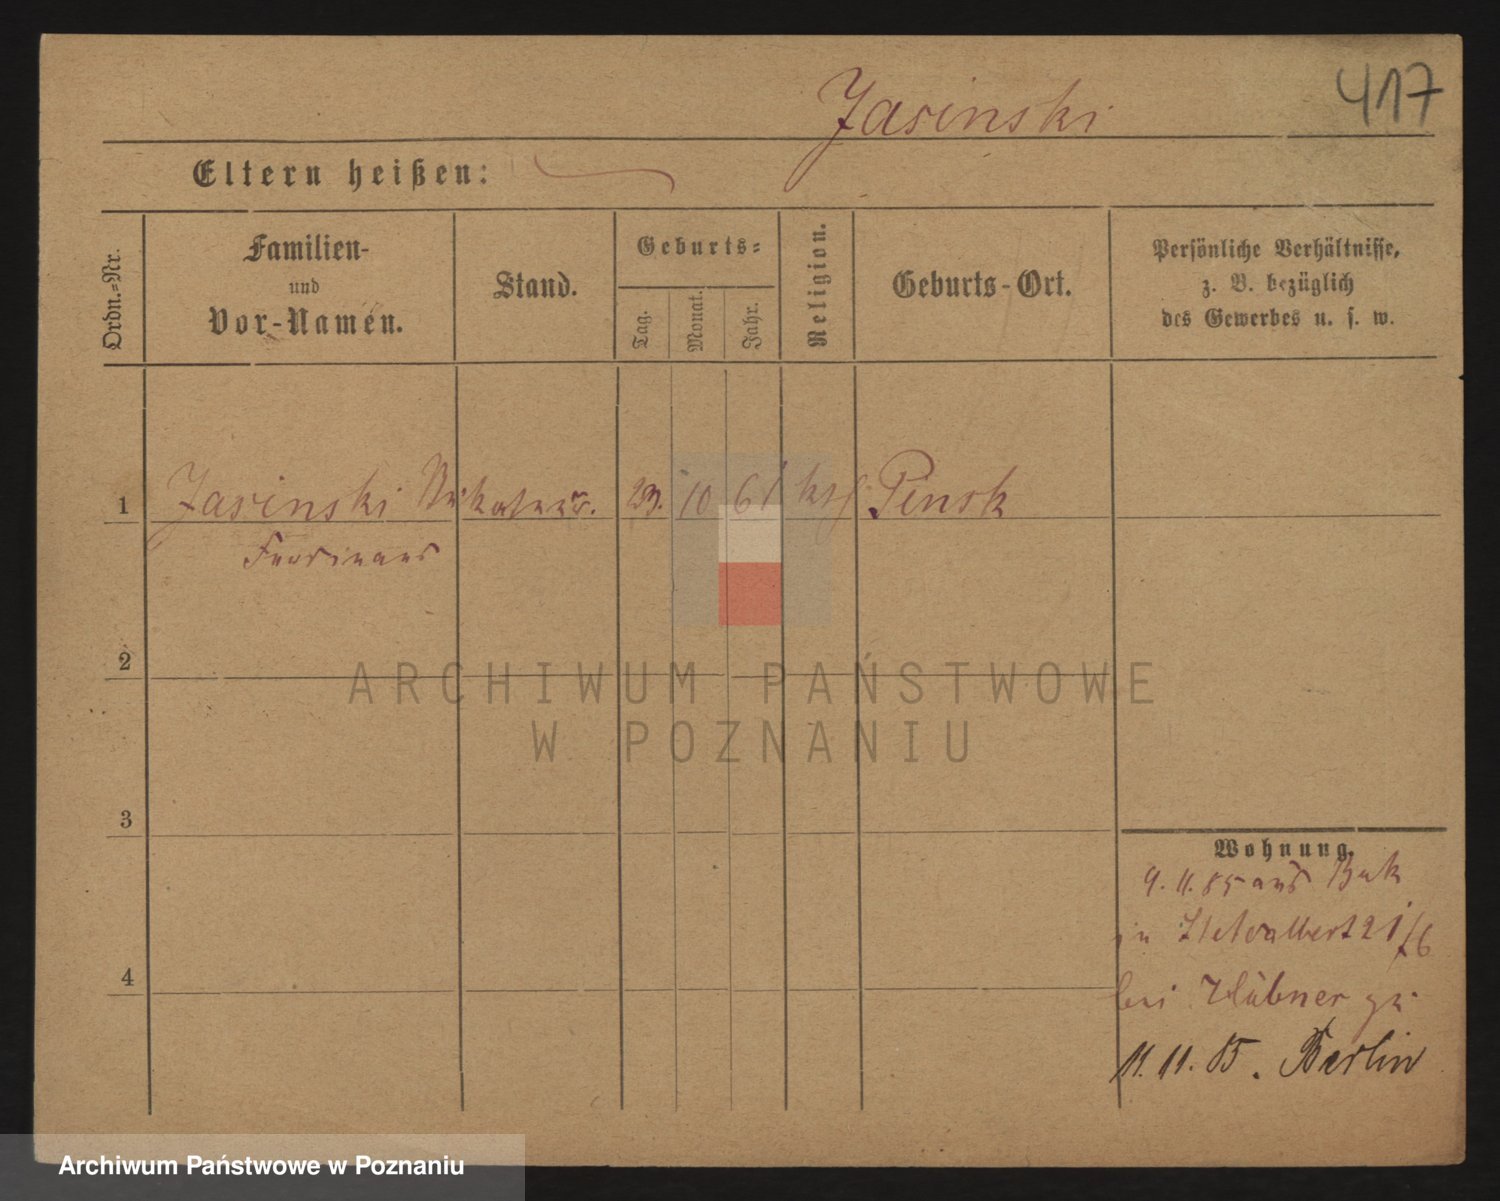 Jasinski
417
Eltern heißen:
Ordn.-Nr.
Familien-
und
Vor-Namen.
Stand.
Geburts-
Tag.
Monat.
Jahr.
Religion.
Geburts-Ort.
Persönliche Verhältnisse,
z. B. bezüglich
des Gewerbes u. s. w.
1
Jasinski
23. 10 61 kth Pinsk
Ferdinand
2
ARCHIWUM PAŃSTWOWE
W POZNANIU
3
Wohnung.
9. 11. 85 aus Buk
in St Adalbert 21/6
bei Hübner zu
4
11. 11. 85. Berlin
Archiwum Państwowe w Poznaniu